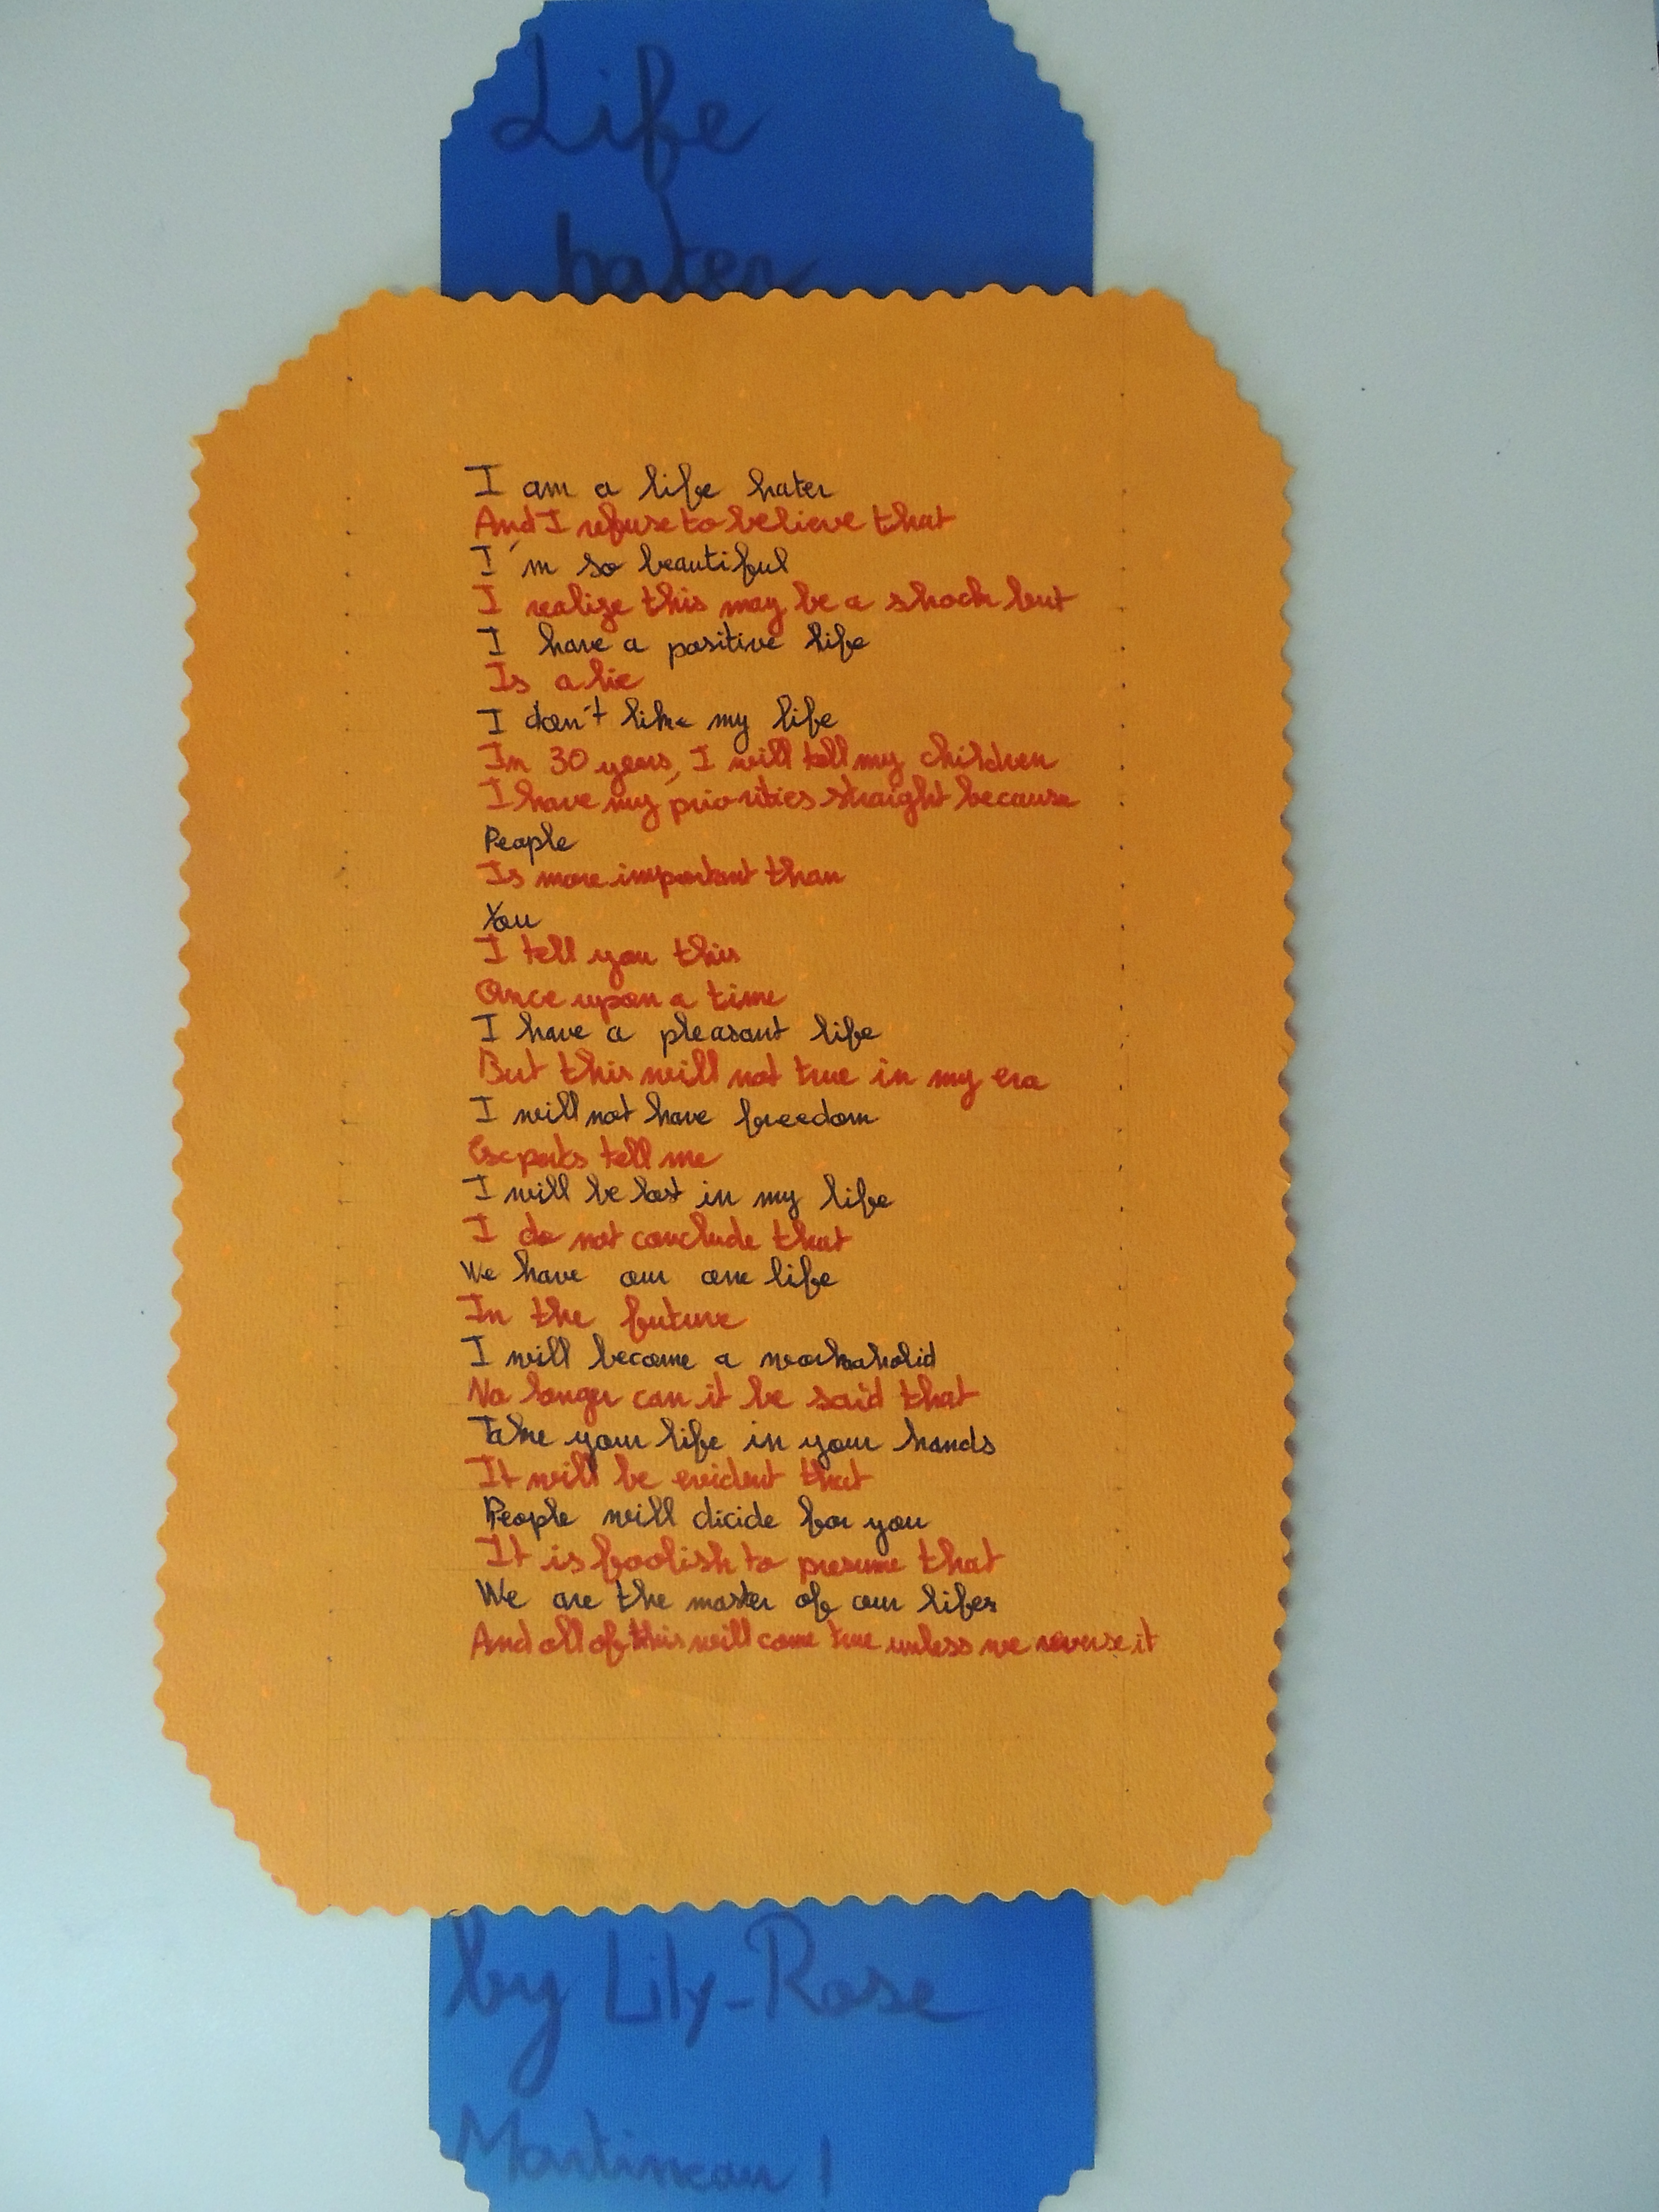 Life
hater
I am a life hater
And I refuse to believe that
I'm so beautiful
I realize this may be a shock but
I have a positive life
Is a lie
I don't like my life
In 30 years, I will tell my children
I have my priorities straight because
People
Is more important than
You
I tell you this
Once upon a time
I have a pleasant life
But this will not true in my era
I will not have freedom
Experts tell me
I will be lost in my life
I do not conclude that
We have our one life
In the future
I will become a workaholid
No longer can it be said that
Take your life in your hands
It will be evident that
People will dicide for you
It is foolish to presume that
We are the master of our lifes
And all of this will come true unless we reverse it
by Lily-Rose
Martineau !